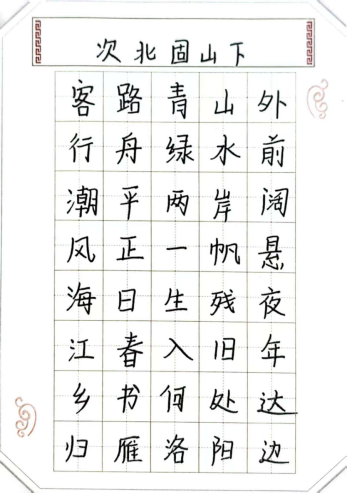 次北固山下
客路青山外
行舟绿水前
潮平两岸阔
风正一帆悬
海日生残夜
江春入旧年
乡书何处达
归雁洛阳边